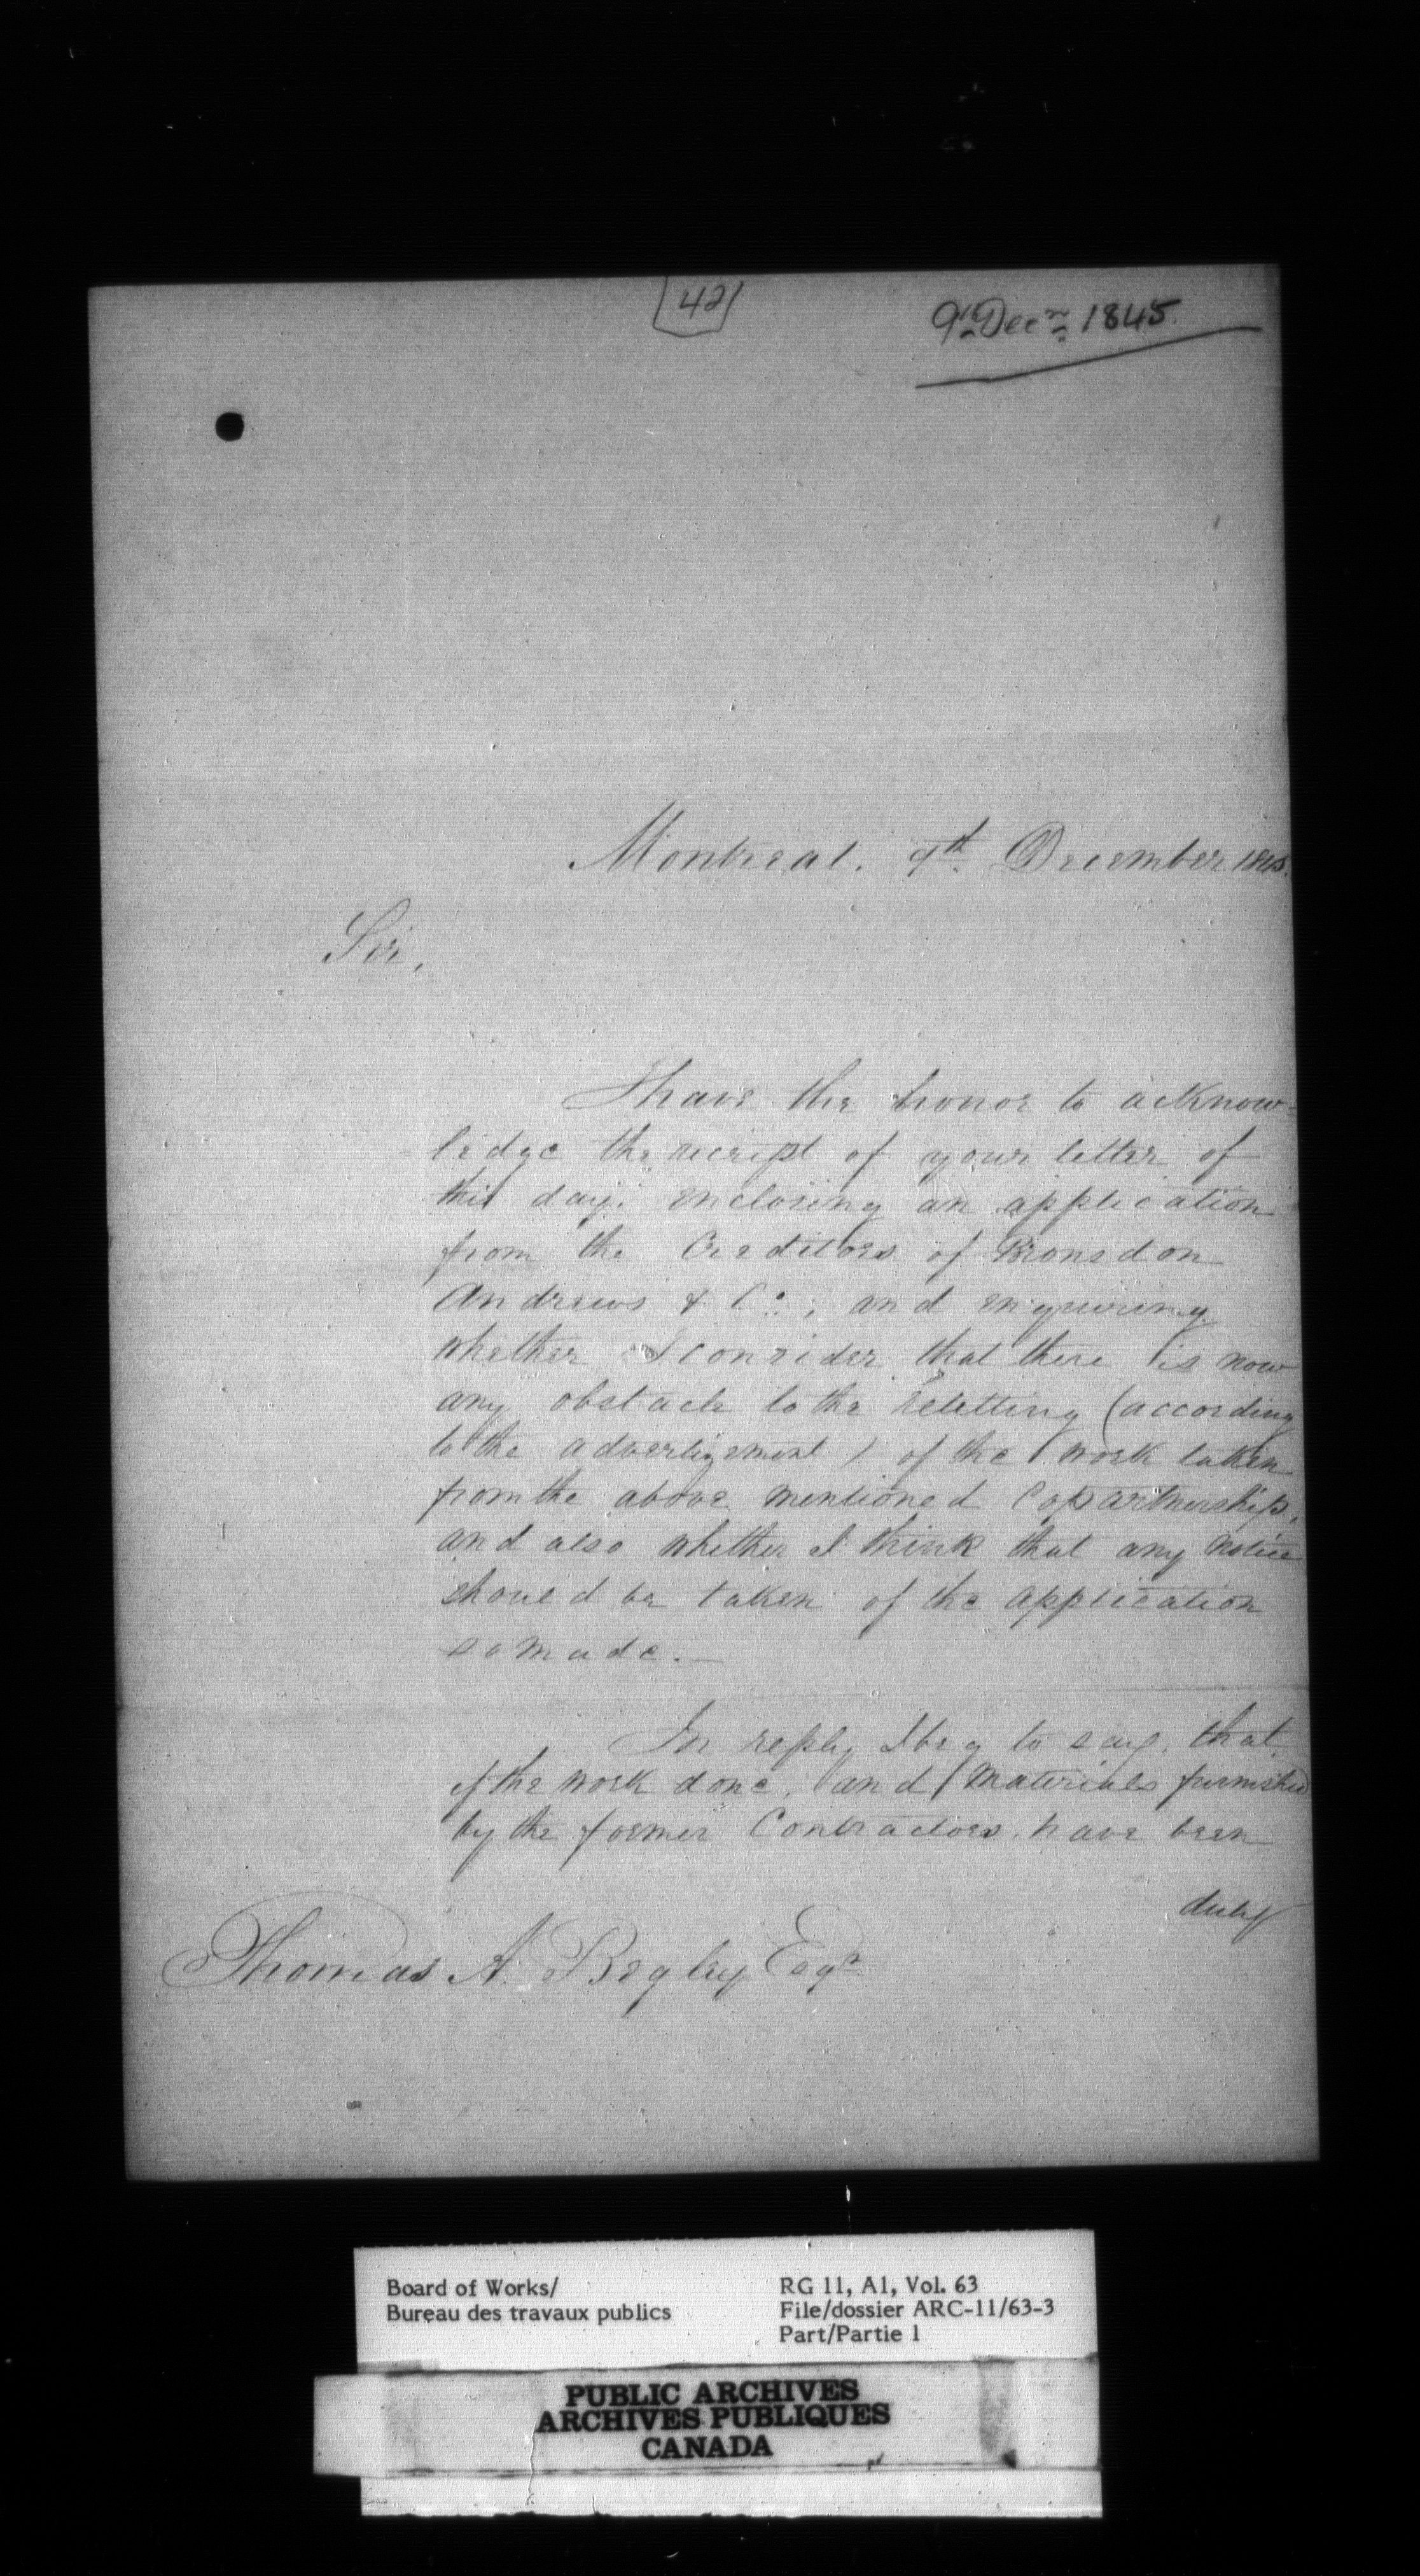 421
9th Decr 1845.
Montreal. 9th December 1845.
Sir,
I have the honor to acknow=
=ledge the receipt of your letter of
this day. enclosing an application
from the Creditors of Bronsdon
Andrews & Co., and enquiring
whether I consider that there is now
any obstacle to the reletting (according
to the advertizement) of the work taken
from the above mentioned Copartnership,
and also whether I think that any notice
should be taken of the application
so made.—
In reply I beg to say, that
if the work done, and materials furnished
by the former Contractors have been
duly
Thomas A. Begley Esqr
Board of Works/
Bureau des travaux publics
RG 11, A1, Vol. 63
File/dossier ARC-11/63-3
Part/Partie 1
PUBLIC ARCHIVES
ARCHIVES PUBLIQUES
CANADA